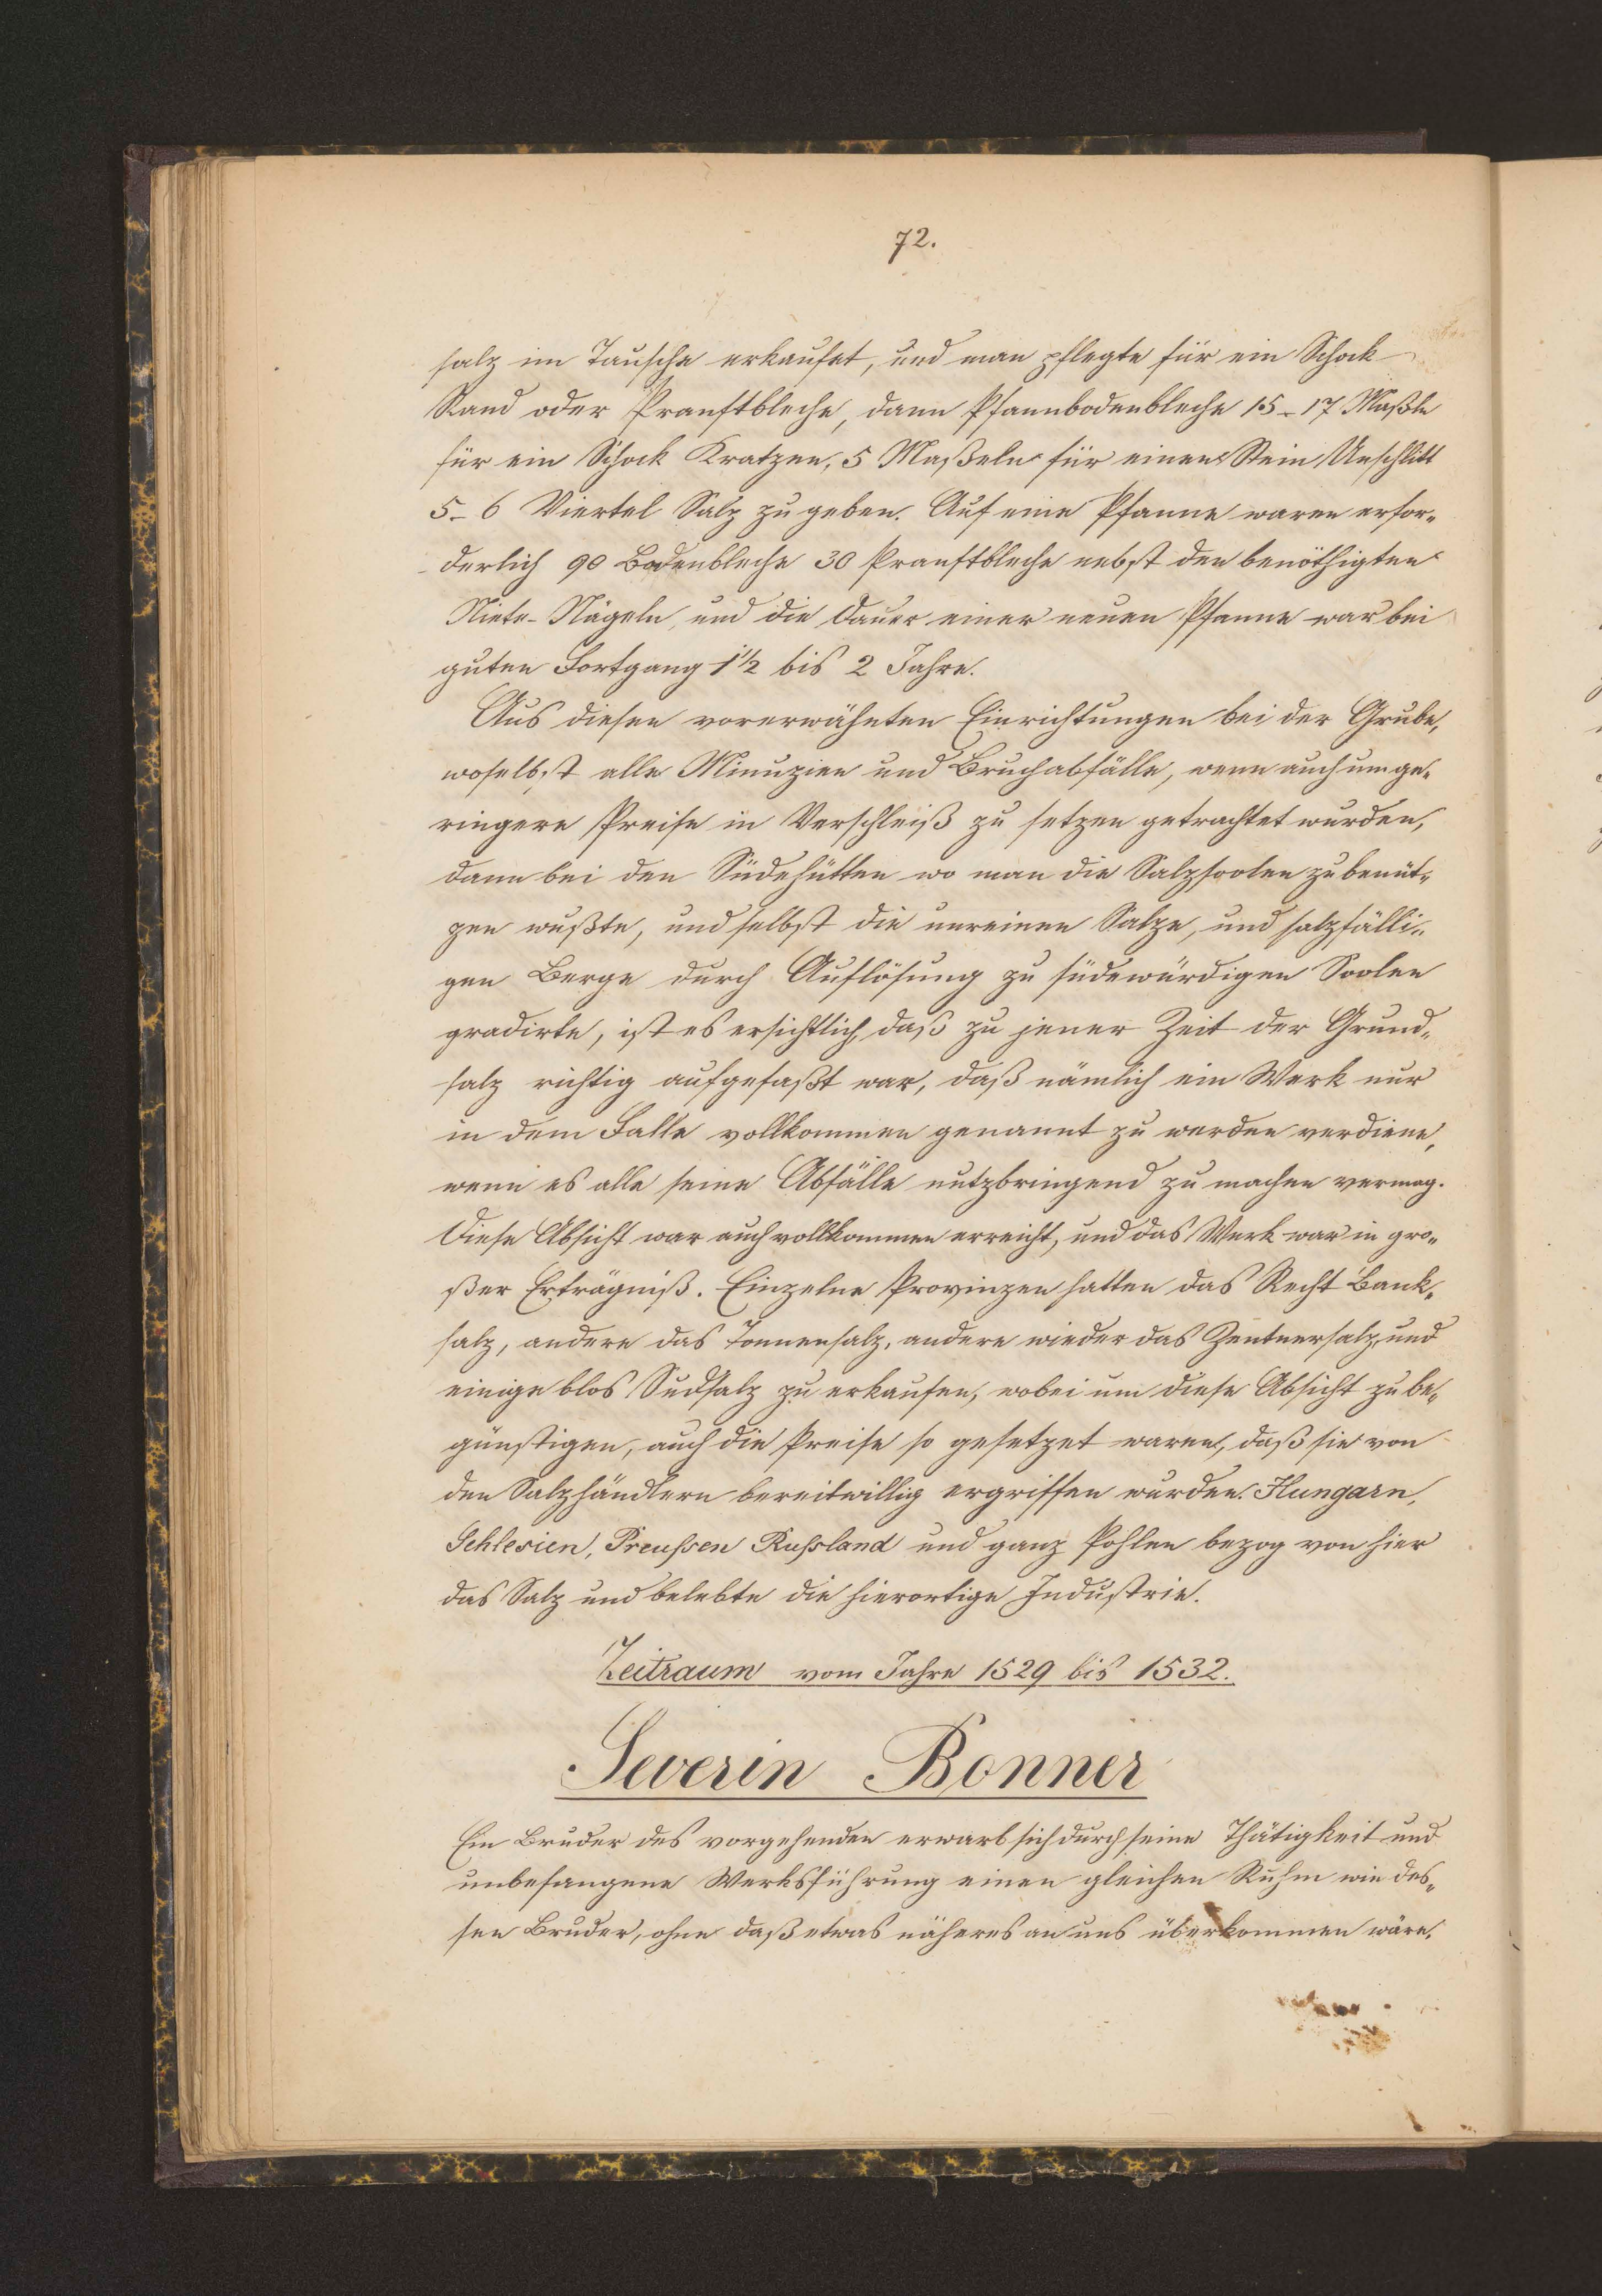 72.
salz im Tausche erkaufet, und man pflegte für ein Schock
Rand oder Pranftbleche, dann Pfannbodenbleche 15-17 Maßln
für ein Schock Kratzen, 5 Maßeln für einen Stein Unschlitt
5-6 Viertel Salz zu geben. Auf eine Pfanne waren erfor-
derlich 90 Bodenbleche 30 Pranftbleche nebst den benöthigten
Niete-Nägeln, und die Dauer einer neuen Pfanne war bei
guten Fortgang 1 1/2 bis 2 Jahre.
Aus diesen vorerwähnten Einrichtungen bei der Grube,
woselbst alle Minuzien und Bruchabfälle, wenn auch um ge-
ringere Preise in Verschleiß zu setzen getrachtet wurden,
dann bei den Südehütten wo man die Salzsoolen zu benüt-
zen wußte, und selbst die unreinen Salze, und salzfälli-
gen Berge durch Auflösung zu südewürdigen Soolen
gradirte, ist es ersichtlich, daß zu jener Zeit der Grund-
salz richtig aufgefaßt war, daß nämlich ein Werk nur
in dem Falle vollkommen genannt zu werden verdiene,
wenn es alle seine Abfälle nutzbringend zu machen vermag.
Diese Absicht war auch vollkommen erreicht, und das Werk war in gro-
ßer Erträgniß. Einzelne Provinzen hatten das Recht Bank-
salz, andere das Tonnensalz, andere wieder das Zentnersalz, und
einige blos Sudsalz zu erkaufen, wobei um diese Absicht zu be-
günstigen, auch die Preise so gesetzet waren, daß sie von
den Salzhändlern bereitwillig ergriffen wurden. Hungarn,
Schlesien, Preußen Rußland und ganz Pohlen bezog von hier
das Salz und belebte die hierortige Industrie.
Zeitraum vom Jahre 1529 bis 1532.
Severin Bonner
Ein Bruder des vorgehenden erwarb sich durch seine Thätigkeit und
unbefangene Werksführung einen gleichen Ruhm wie des-
sen Bruder, ohne daß etwas näheres an uns überkommen wäre.